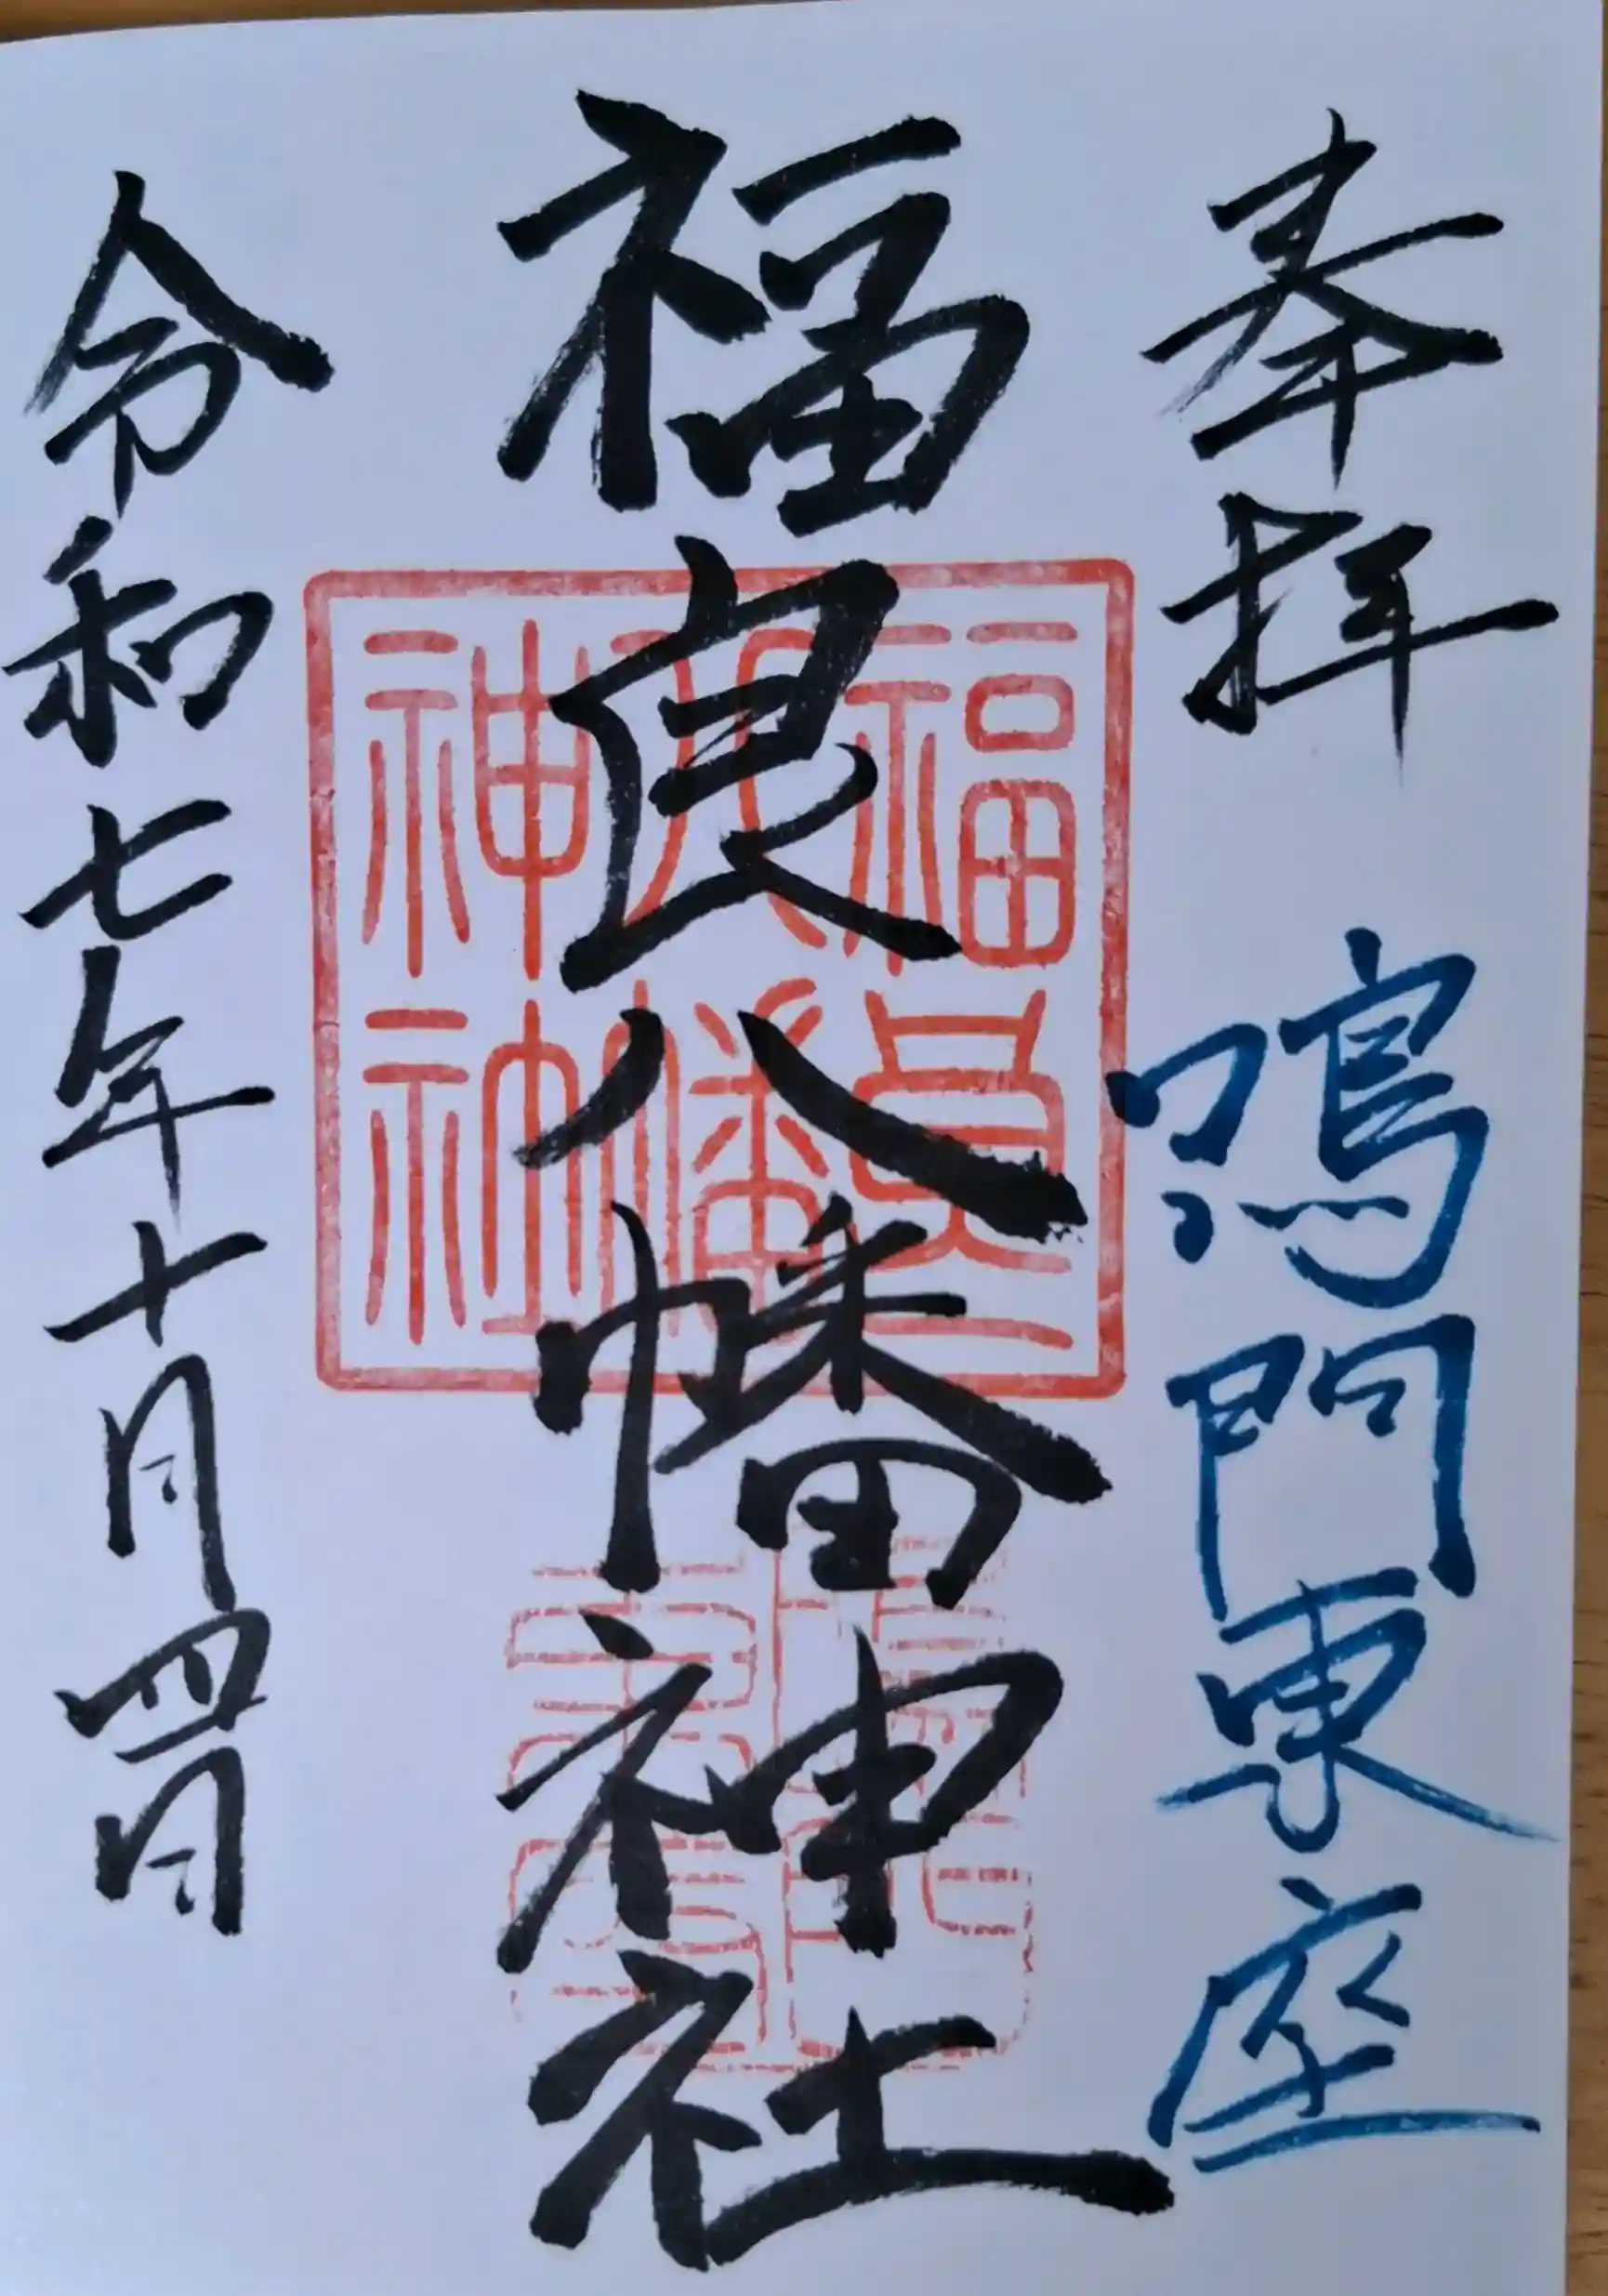 奉拝
鳴門東座
福良八幡神社
福良
八幡
神社
令和七年十月四日